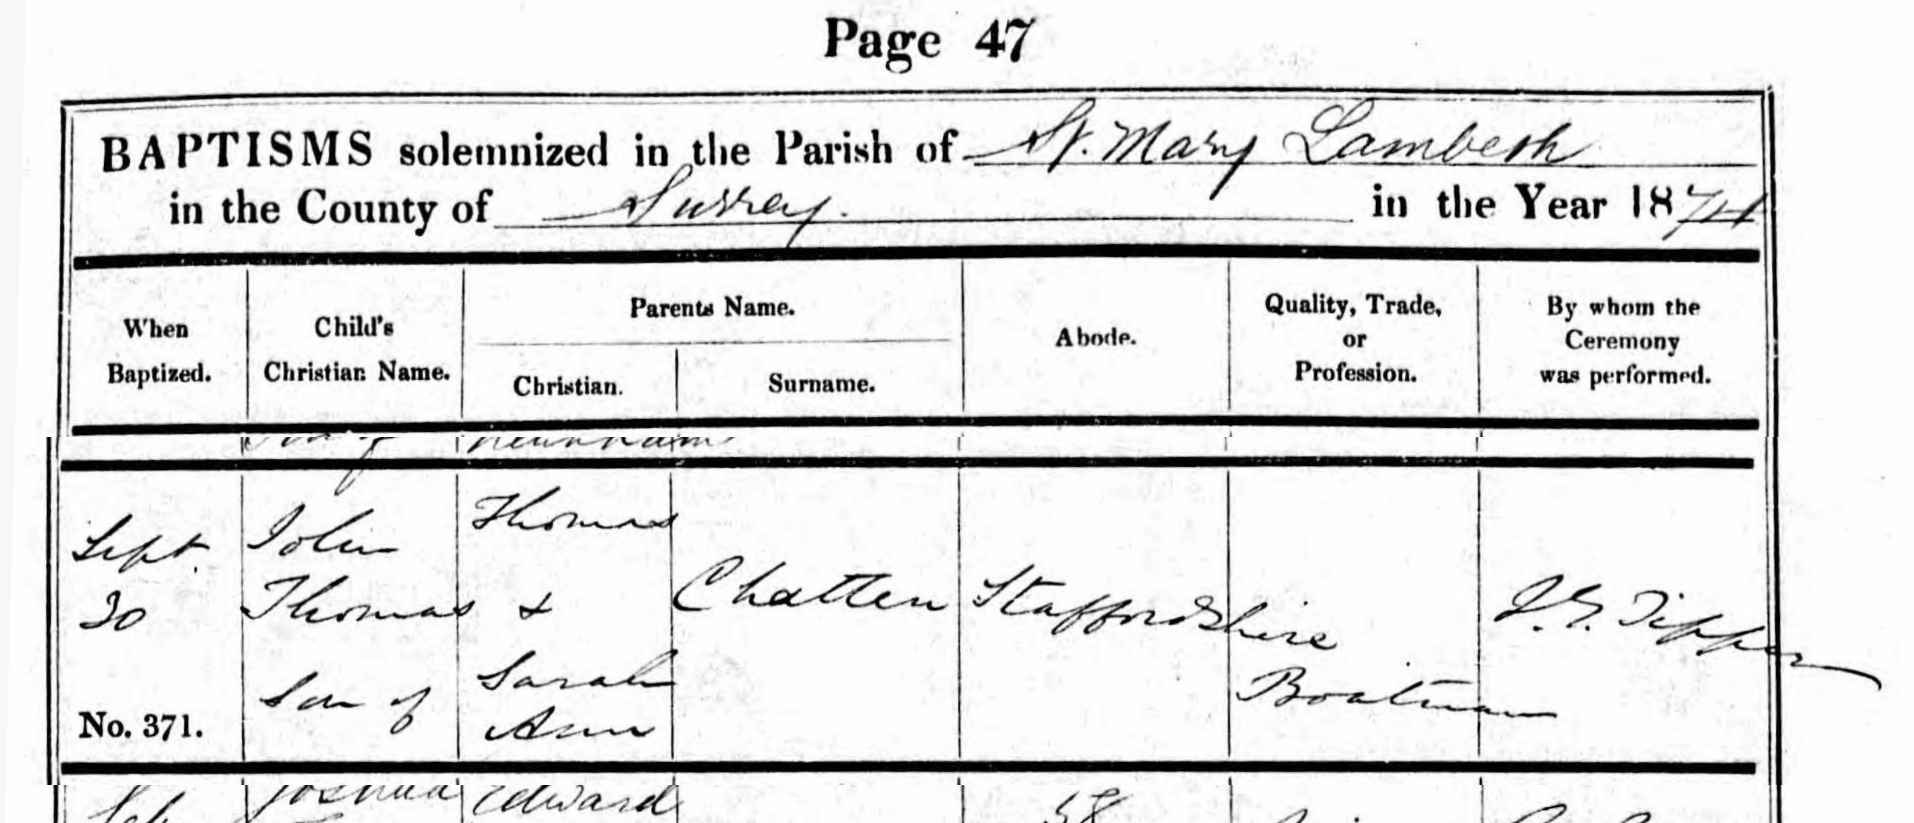 Page 47
BAPTISMS solemnized in the Parish of St. Mary Lambeth
in the County of Surrey. in the Year 1874
When
Baptized.
Child's
Christian Name.
Parents Name.
Christian.
Surname.
Abode.
Quality, Trade,
or
Profession.
By whom the
Ceremony
was performed.
Son of
Sept.
30
No. 371.
John
Thomas
Son of
Thomas
&
Sarah
Ann
Chatten
Staffordshire
Boatman
J. G. Tipper
Joshua
Edward
58